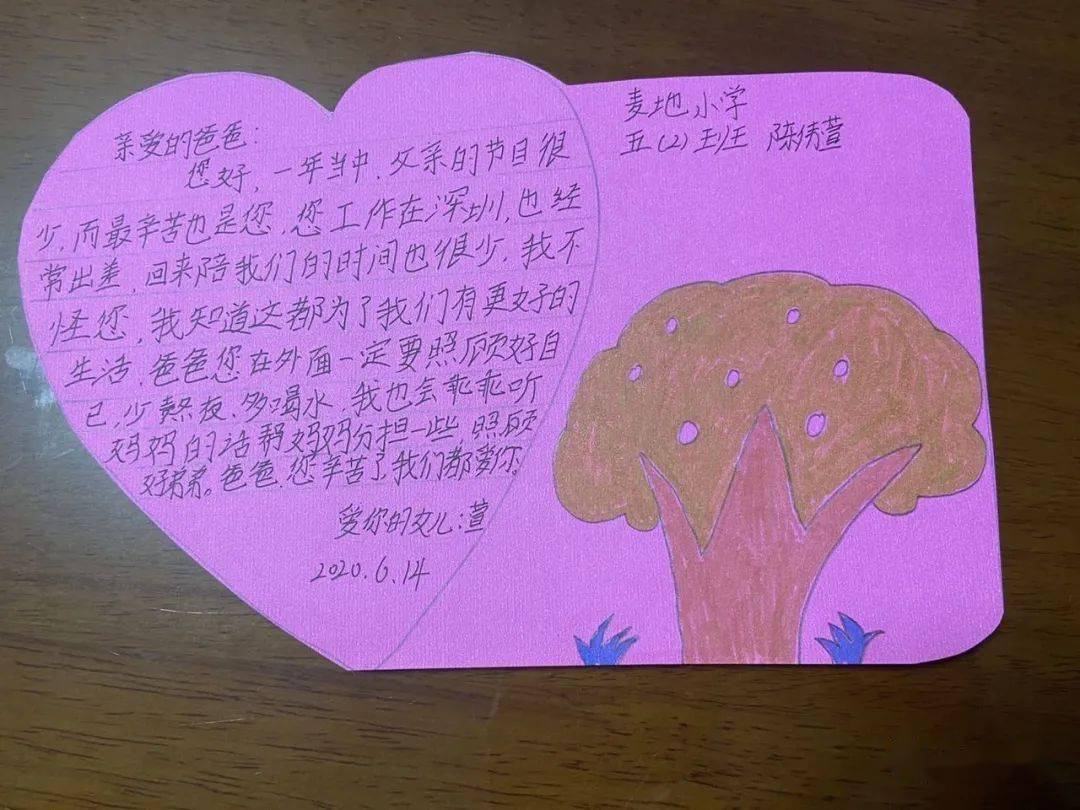 亲爱的爸爸:
您好,一年当中,父亲的节日很
少,而最辛苦也是您,您工作在深圳,也经
常出差,回来陪我们的时间也很少,我不
怪您,我知道这都为了我们有更好的
生活,爸爸您在外面一定要照顾好自
己,少熬夜、多喝水,我也会乖乖听
妈妈的话帮妈妈分担一些 照顾
好弟弟。爸爸,您辛苦了,我们都爱你。
爱你的女儿:萱
2020.6.14
麦地小学
五(2)班 陈倩萱